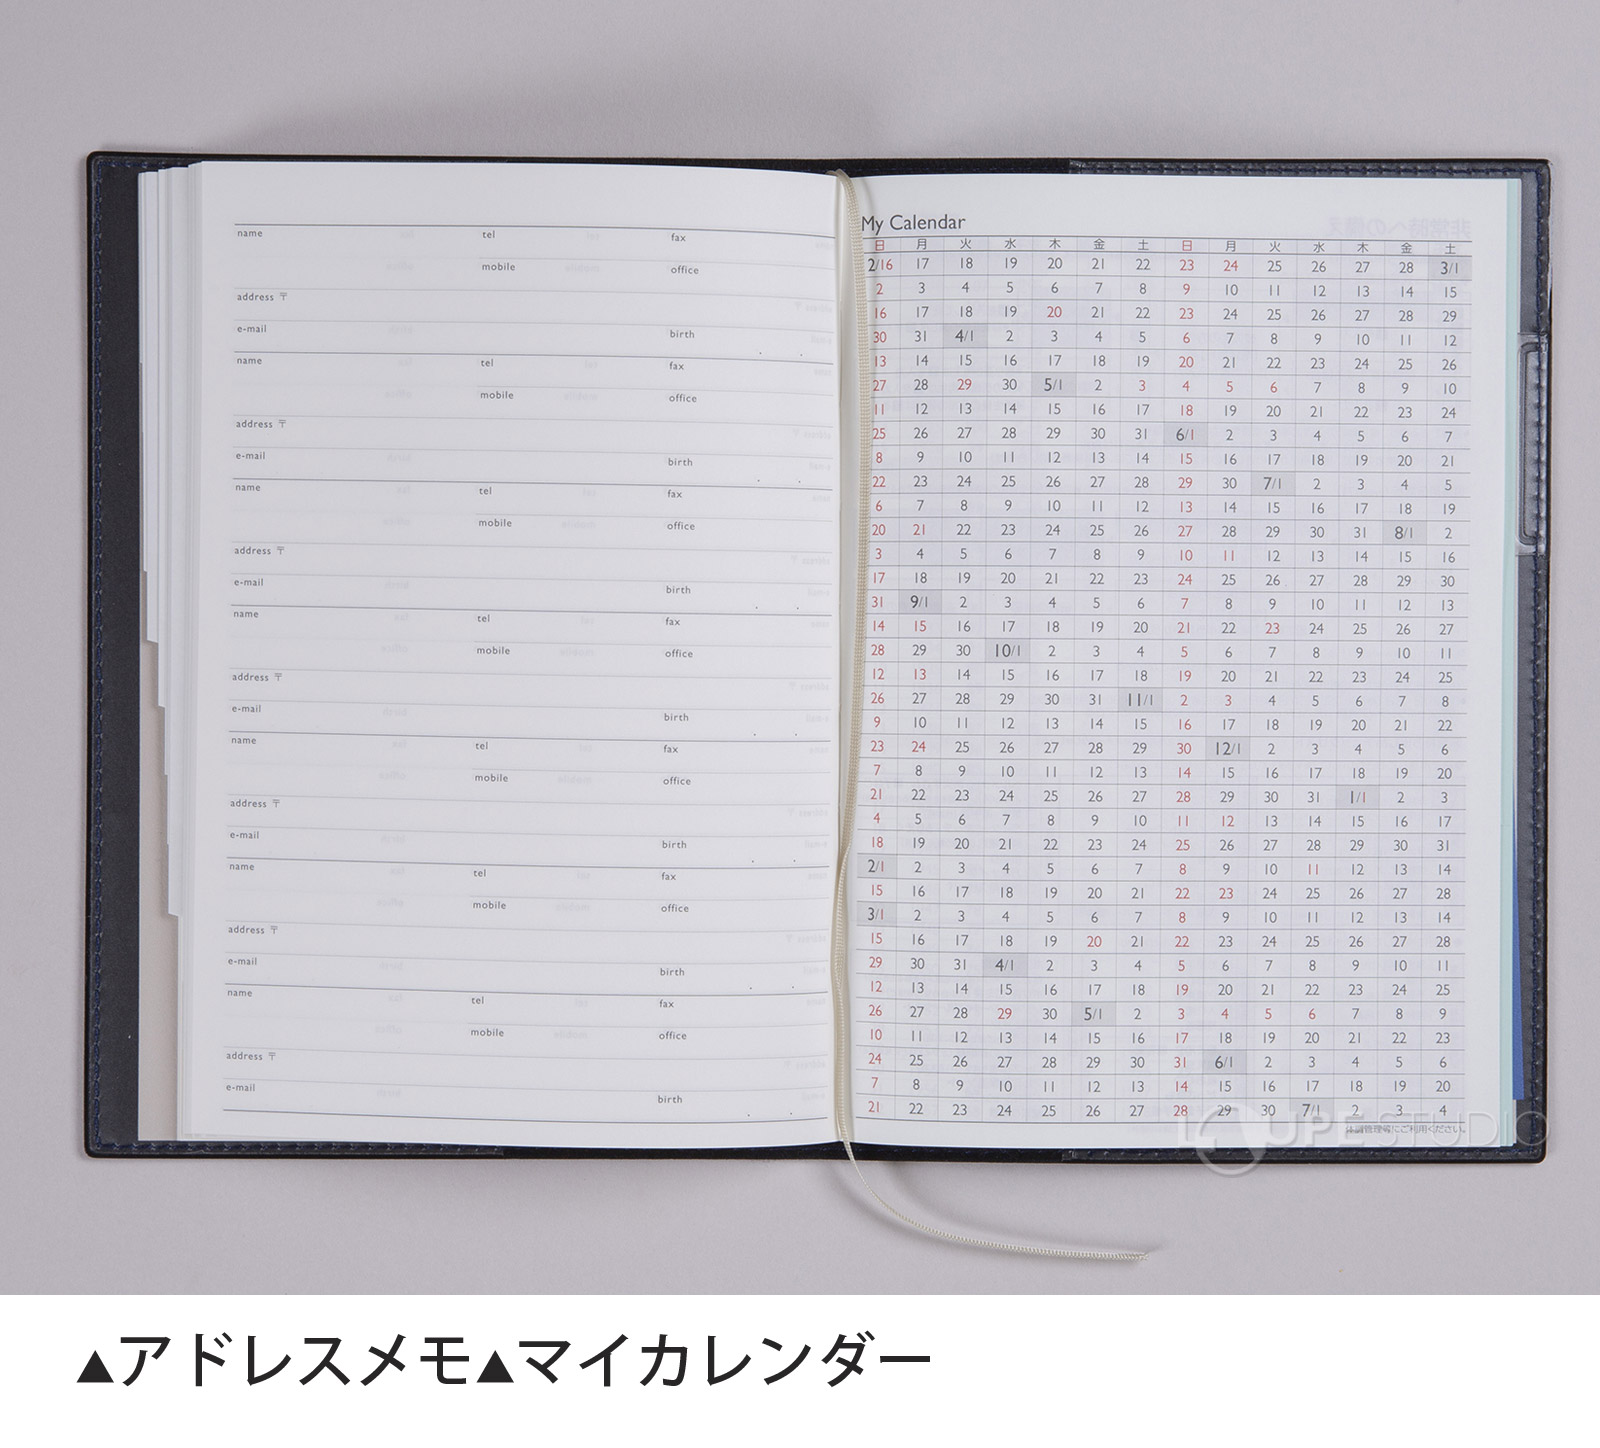 name tel fax
mobile office
address 〒
e-mail birth
name tel fax
mobile office
address 〒
e-mail birth
name tel fax
mobile office
address 〒
e-mail birth
name tel fax
mobile office
address 〒
e-mail birth
name tel fax
mobile office
address 〒
e-mail birth
name tel fax
mobile office
address 〒
e-mail birth
name tel fax
mobile office
address 〒
e-mail birth
My Calendar
日 月 火 水 木 金 土 日 月 火 水 木 金 土
2/16 17 18 19 20 21 22 23 24 25 26 27 28 3/1
2 3 4 5 6 7 8 9 10 11 12 13 14 15
16 17 18 19 20 21 22 23 24 25 26 27 28 29
30 31 4/1 2 3 4 5 6 7 8 9 10 11 12
13 14 15 16 17 18 19 20 21 22 23 24 25 26
27 28 29 30 5/1 2 3 4 5 6 7 8 9 10
11 12 13 14 15 16 17 18 19 20 21 22 23 24
25 26 27 28 29 30 31 6/1 2 3 4 5 6 7
8 9 10 11 12 13 14 15 16 17 18 19 20 21
22 23 24 25 26 27 28 29 30 7/1 2 3 4 5
6 7 8 9 10 11 12 13 14 15 16 17 18 19
20 21 22 23 24 25 26 27 28 29 30 31 8/1 2
3 4 5 6 7 8 9 10 11 12 13 14 15 16
17 18 19 20 21 22 23 24 25 26 27 28 29 30
31 9/1 2 3 4 5 6 7 8 9 10 11 12 13
14 15 16 17 18 19 20 21 22 23 24 25 26 27
28 29 30 10/1 2 3 4 5 6 7 8 9 10 11
12 13 14 15 16 17 18 19 20 21 22 23 24 25
26 27 28 29 30 31 11/1 2 3 4 5 6 7 8
9 10 11 12 13 14 15 16 17 18 19 20 21 22
23 24 25 26 27 28 29 30 12/1 2 3 4 5 6
7 8 9 10 11 12 13 14 15 16 17 18 19 20
21 22 23 24 25 26 27 28 29 30 31 1/1 2 3
4 5 6 7 8 9 10 11 12 13 14 15 16 17
18 19 20 21 22 23 24 25 26 27 28 29 30 31
2/1 2 3 4 5 6 7 8 9 10 11 12 13 14
15 16 17 18 19 20 21 22 23 24 25 26 27 28
3/1 2 3 4 5 6 7 8 9 10 11 12 13 14
15 16 17 18 19 20 21 22 23 24 25 26 27 28
29 30 31 4/1 2 3 4 5 6 7 8 9 10 11
12 13 14 15 16 17 18 19 20 21 22 23 24 25
26 27 28 29 30 5/1 2 3 4 5 6 7 8 9
10 11 12 13 14 15 16 17 18 19 20 21 22 23
24 25 26 27 28 29 30 31 6/1 2 3 4 5 6
7 8 9 10 11 12 13 14 15 16 17 18 19 20
21 22 23 24 25 26 27 28 29 30 7/1 2 3 4
体調管理等にご利用ください。
▲アドレスメモ▲マイカレンダー